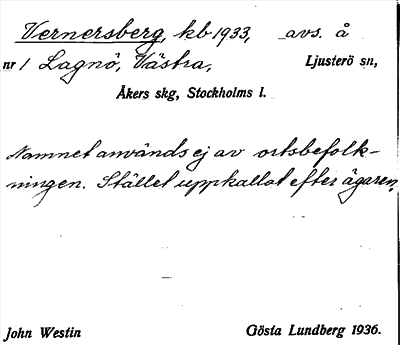 Vernersberg, kb 1933, avs. å
nr 1 Lagnö, Västra, Ljusterö sn,
Åkers skg, Stockholms l.
Namnet används ej av ortsbefolk-
ningen. Stället uppkallat efter ägaren.
John Westin Gösta Lundberg 1936.